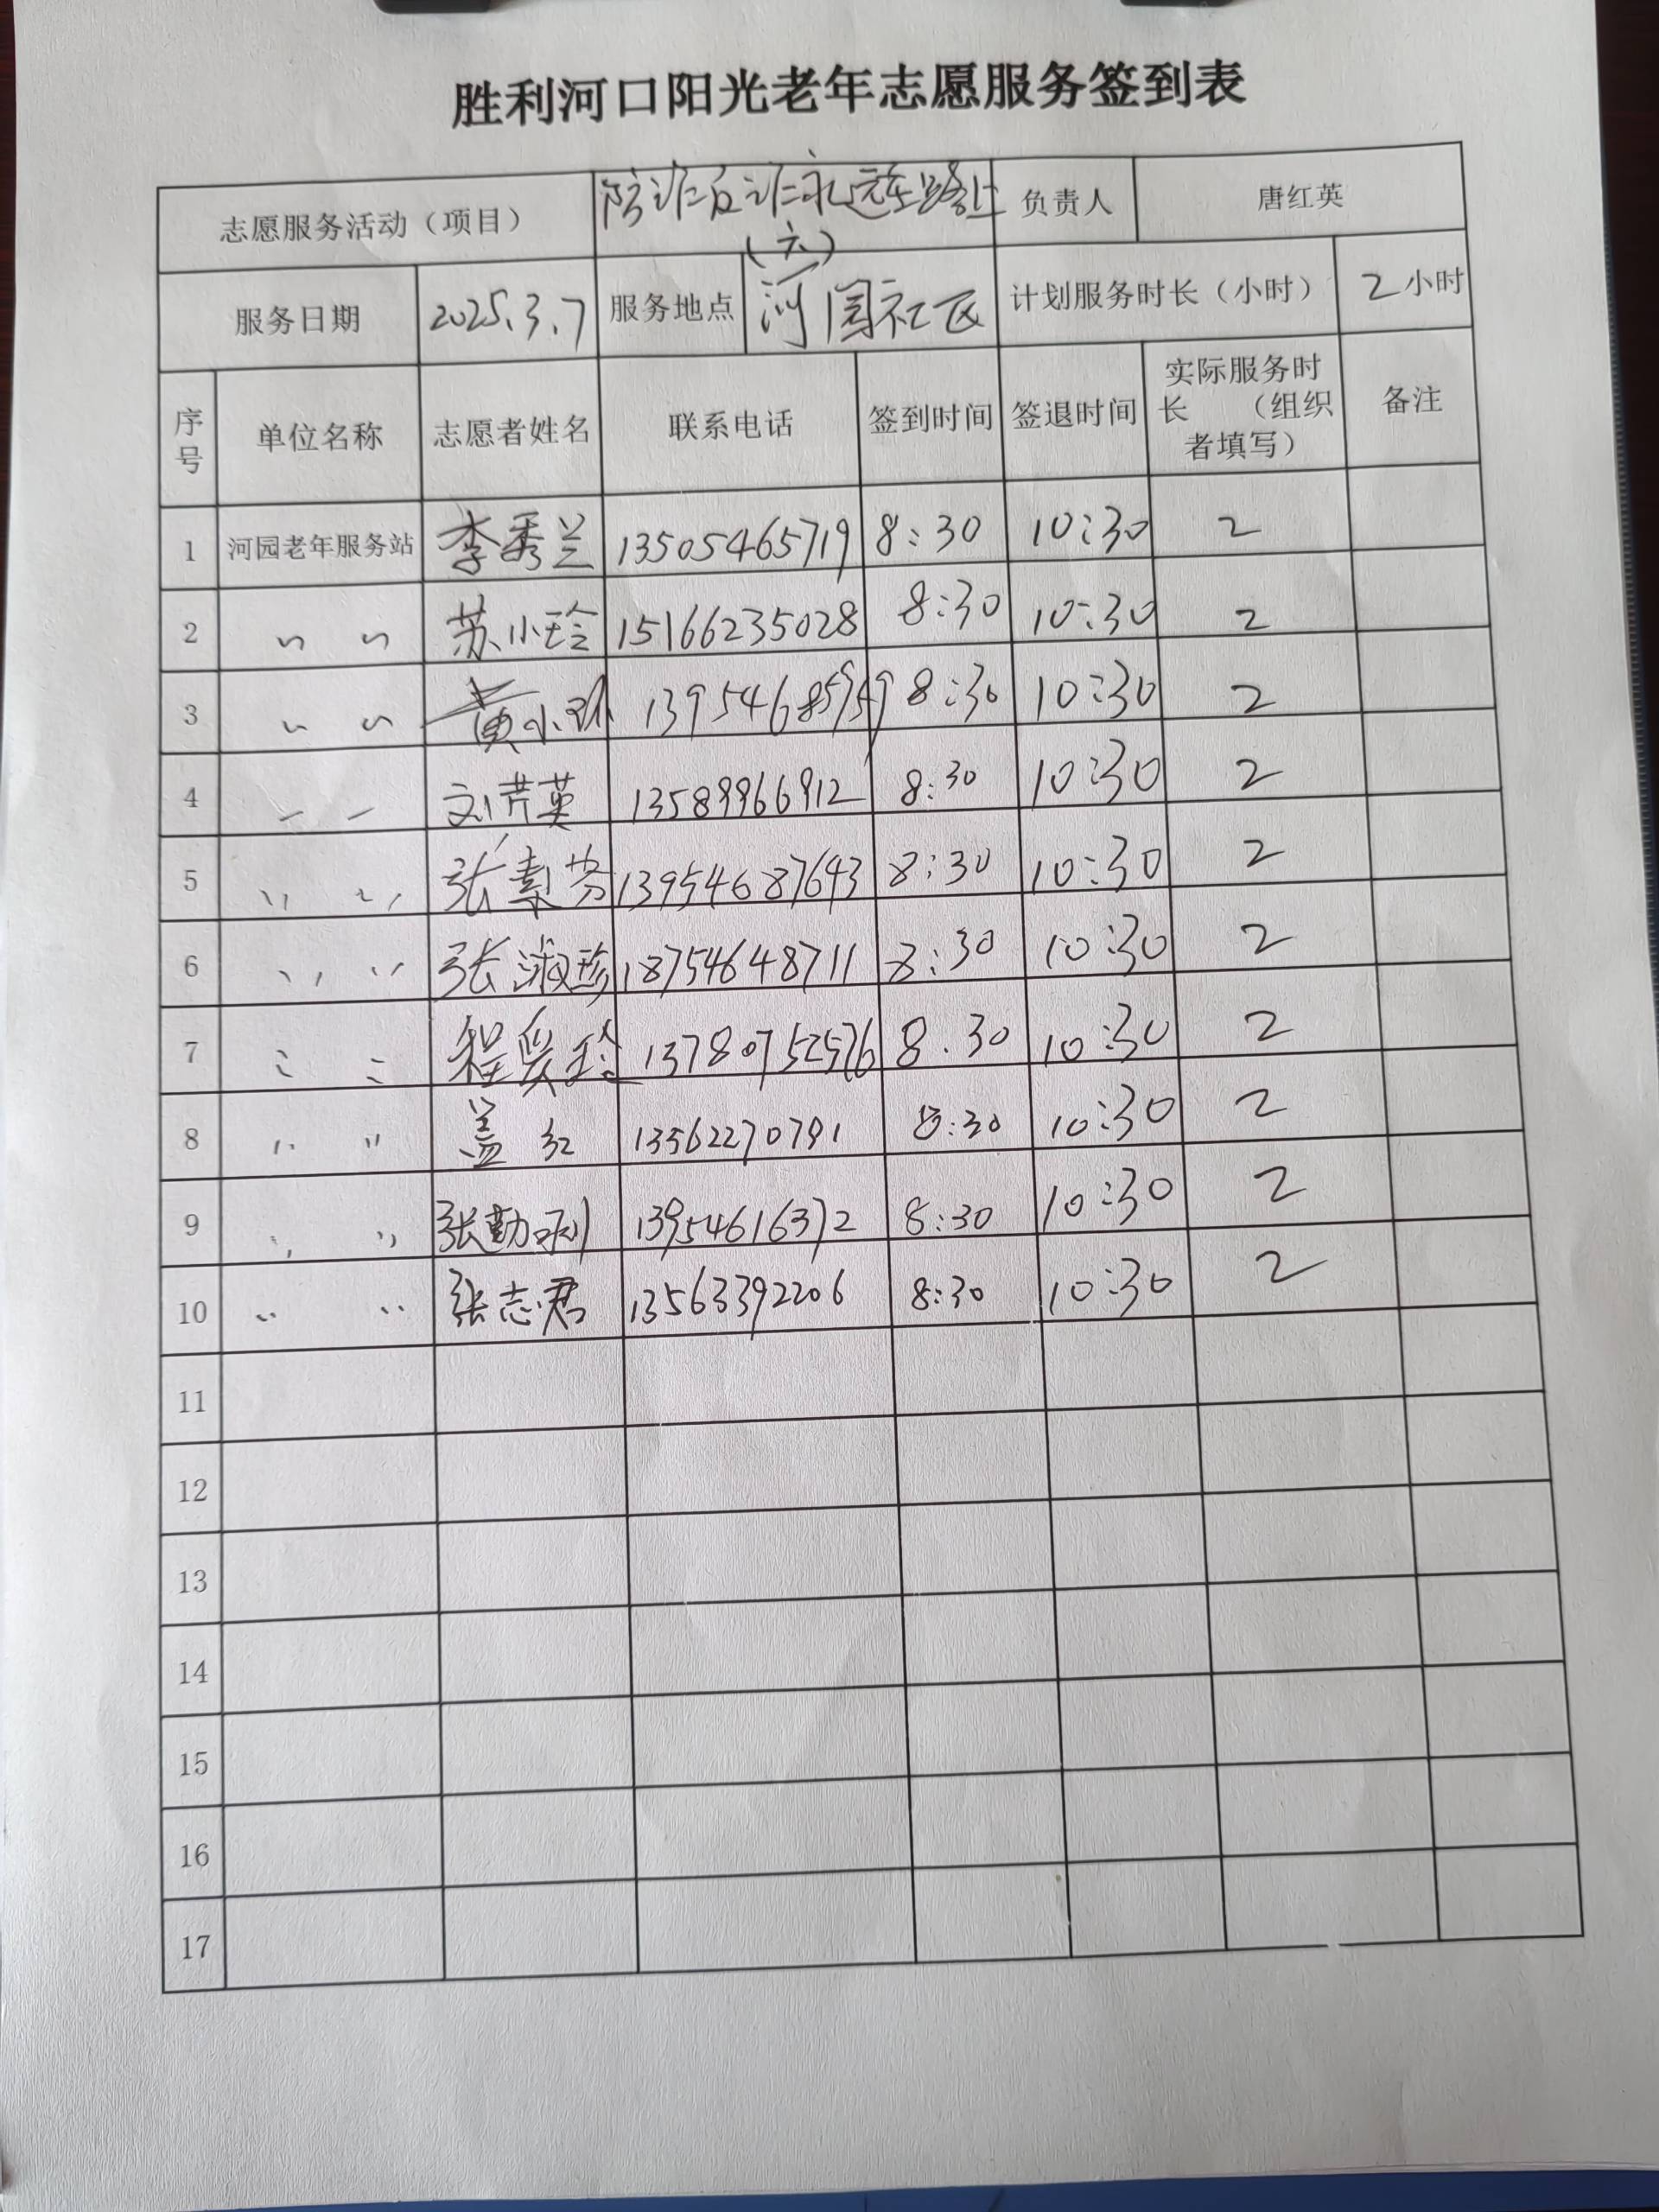 胜利河口阳光老年志愿服务签到表
志愿服务活动（项目） 防诈反诈永远在路上（六） 负责人 唐红英
服务日期 2025.3.7 服务地点 河园社区 计划服务时长（小时） 2小时
序号 单位名称 志愿者姓名 联系电话 签到时间 签退时间 实际服务时长 （组织者填写） 备注
1 河园老年服务站 李秀兰 13505465719 8:30 10:30 2
2 〃 〃 苏小玲 15166235028 8:30 10:30 2
3 〃 〃 黄小 8:30 10:30 2
4 〃 〃 刘芹英 13589966912 8:30 10:30 2
5 〃 〃 张素芬 13954687643 8:30 10:30 2
6 〃 〃 张淑珍 18754648711 8:30 10:30 2
7 〃 〃 程 玲 13780752576 8:30 10:30 2
8 〃 〃 盖红 13562270791 8:30 10:30 2
9 〃 〃 张勤 13954616372 8:30 10:30 2
10 〃 〃 张志君 13563392206 8:30 10:30 2
11
12
13
14
15
16
17